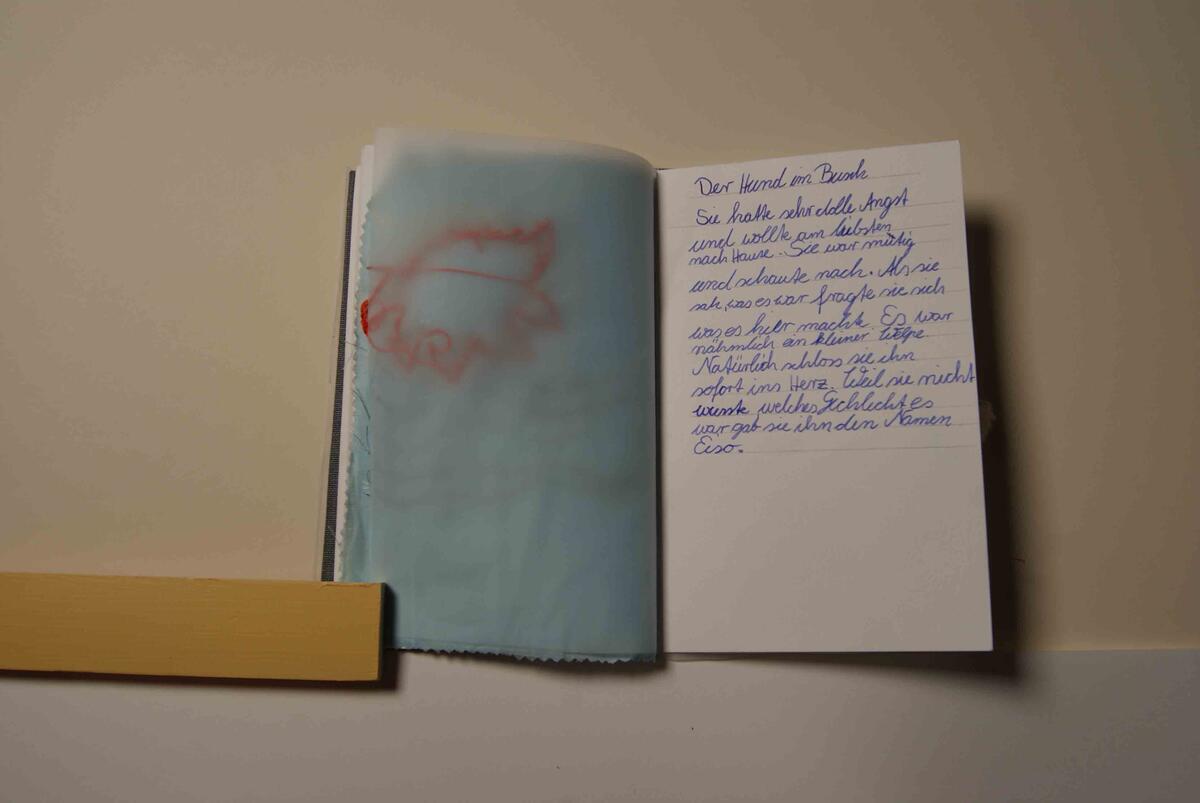 Der Hund im Busch
Sie hatte sehr dolle Angst
und wollte am liebsten
nach Hause. Sie war mutig
und schaute nach. Als sie
sah, was es war fragte sie sich
was es hier machte. Es war
nähmlich ein kleiner Welpe.
Natürlich schloss sie ihn
sofort ins Herz. Weil sie nicht
wusste welches Geschlecht es
war gab sie ihn den Namen
Eiso.